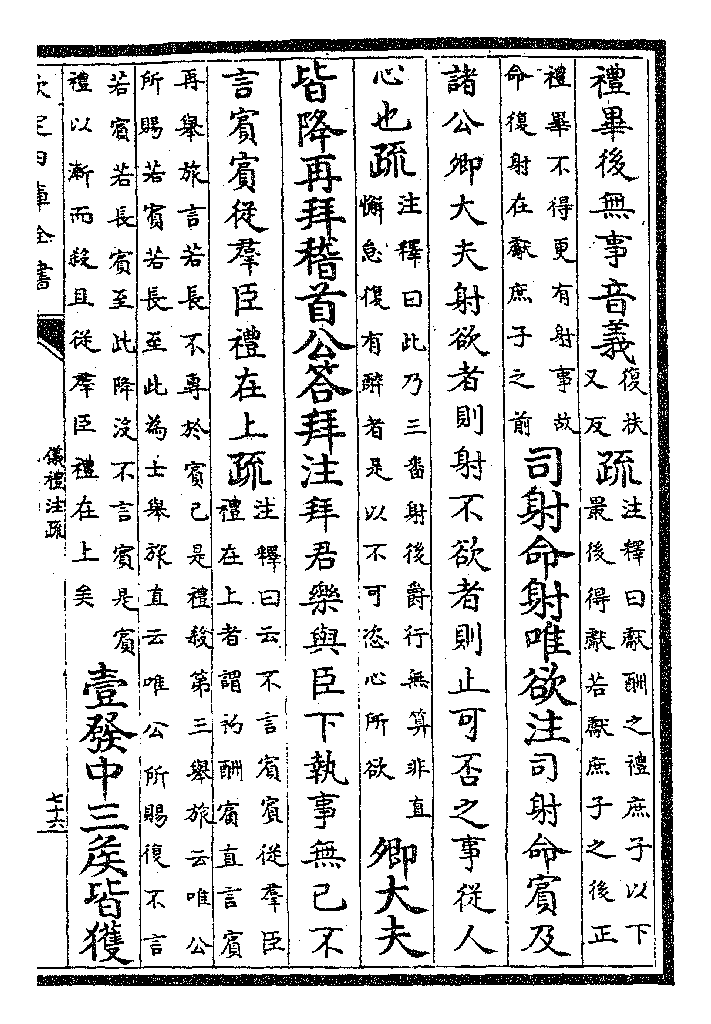 禮畢後無事音義復扶
又反疏注釋曰獻酬之禮庶子以下
最後得獻若獻庶子之後正
禮畢不得更有射事故
命復射在獻庶子之前司射命射唯欲注司射命賓及
諸公卿大夫射欲者則射不欲者則止可否之事從人
心也疏注釋曰此乃三畨射後爵行無算非直
懈怠復有醉者是以不可恣心所欲卿大夫
皆降再拜稽首公答拜注拜君樂與臣下執事無已不
言賓賓從羣臣禮在上疏注釋曰云不言賓賓從羣臣
禮在上者謂初酬賓直言賓
再舉旅言若長不專於賓已是禮殺第三舉旅云唯公
所賜若賓若長至此為士舉旅直云唯公所賜復不言
若賓若長賓至此降沒不言賓是賓
禮以漸而殺且從羣臣禮在上矣壹發中三矦皆獲
欽定四庫全書
儀禮注疏
七十六